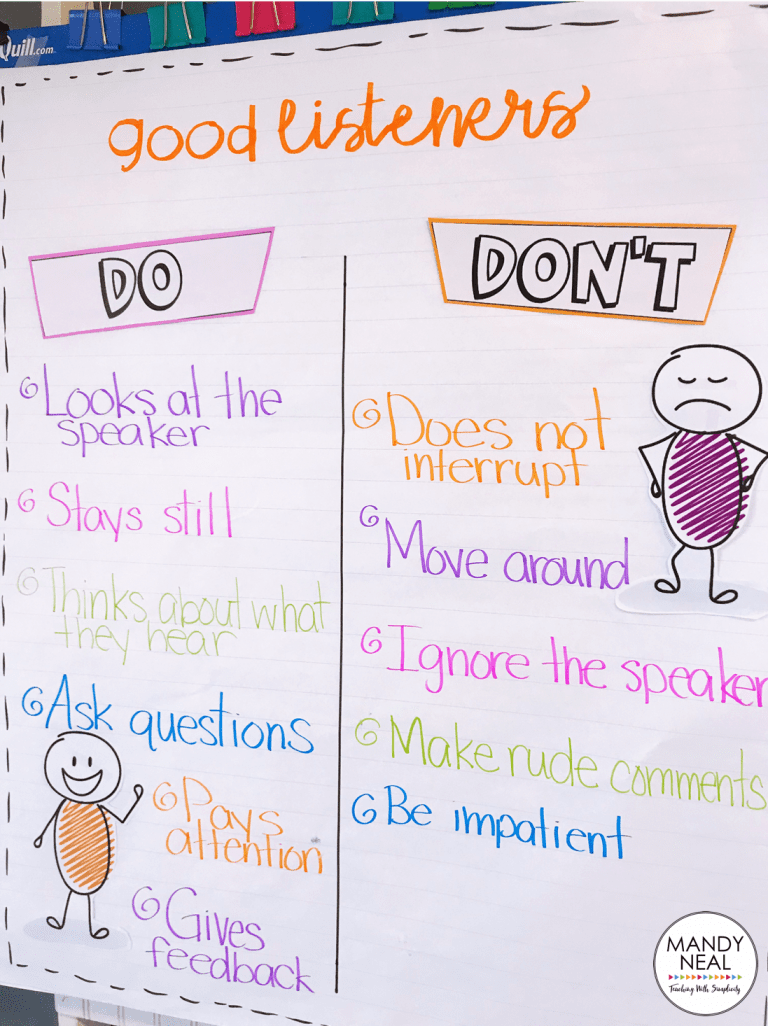 Quill.com
good listeners
DO
Looks at the
speaker
Stays still
Thinks about what
they hear
Ask questions
Pays
attention
Gives
feedback
DON'T
Does not
interrupt
Move around
Ignore the speaker
Make rude comments
Be impatient
MANDY
NEAL
Teaching With Simplicity